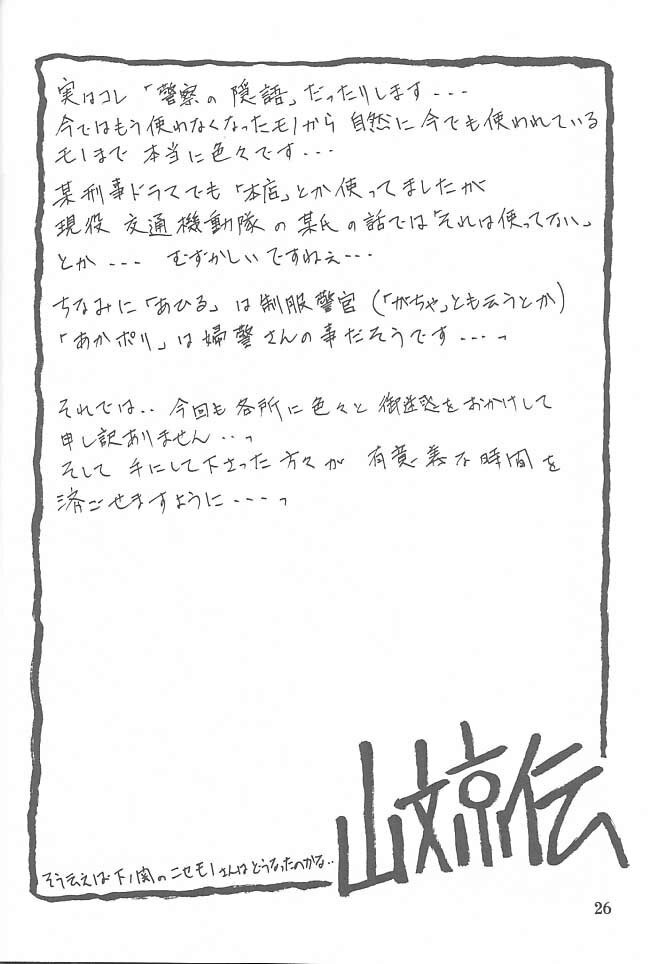 実はコレ「警察の隠語」だったりします---
今ではもう使わなくなったモノから 自然に今でも使われている
モノまで 本当に色々です---
某刑事ドラマでも「本店」とか使ってましたが
現役 交通機動隊の某氏の話では「それは使ってない」
とか --- むずかしいですねぇ---
ちなみに「あひる」は制服警官(「がちゃ」とも云うとか)
「あかポリ」は婦警さんの事だそうです---っ
それでは.. 今回も各所に色々と御迷惑をおかけして
申し訳ありません...っ
そして 手にして下さった方々が 有意義な時間を
済ごせますように---っ
そう云えば下ノ関のニセモノさんはどうなったのかな..
26